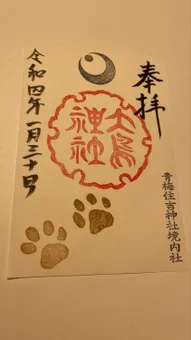 奉拝
大鳥
神社
青梅住吉神社境内社
令和四年一月三十日